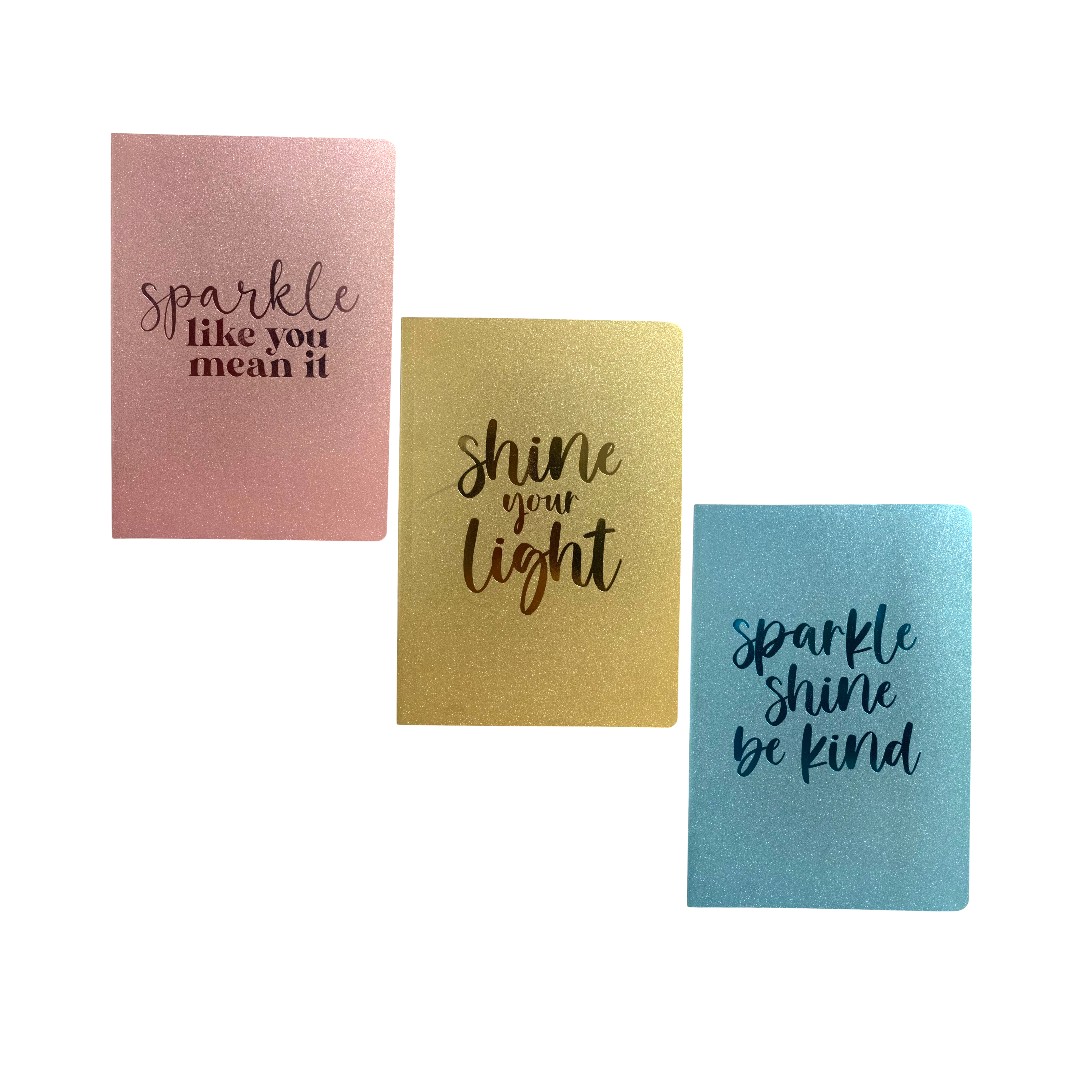 sparkle
like you
mean it
shine
your
light
sparkle
shine
be kind